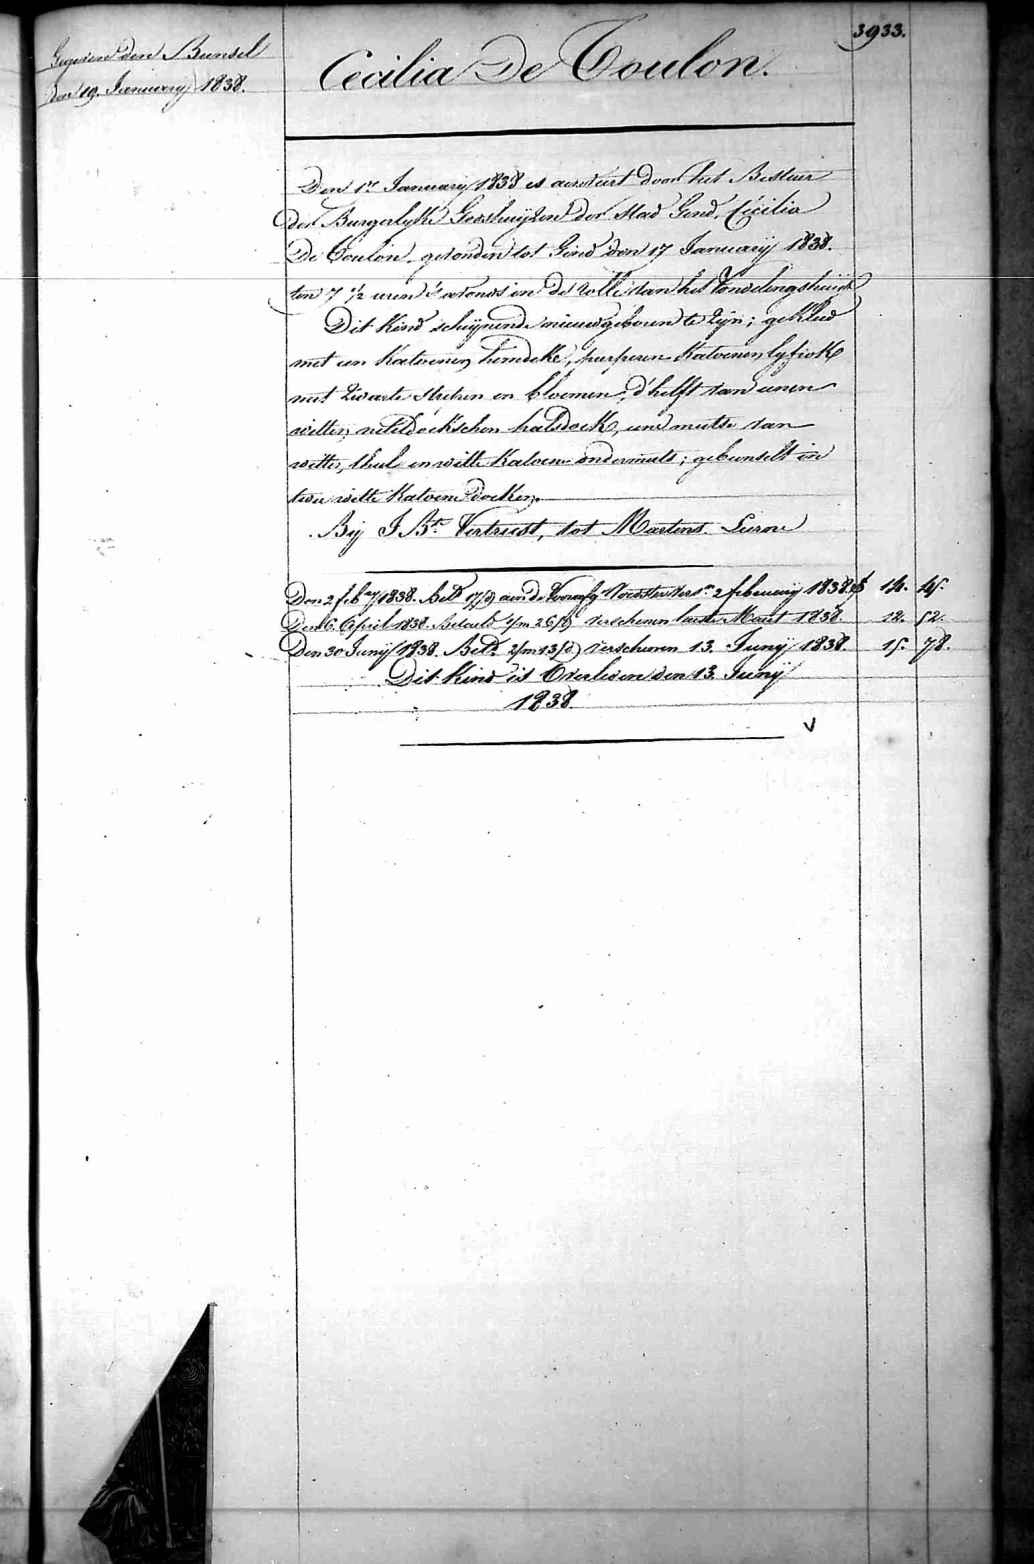 3933.
Gegeven den Bunsel
den 19. January 1838.
Cecilia De Toulon.
Den 17 January 1838 is door het Bestuer
der Burgerlyke Godshuijzen der Stad Gend, Cécilia
De Toulon, gevonden tot Gend den 17 Januarij 1838.
ten 7 1/2 uren s'avonds in de rolle van het Vondelingshuijs
Dit Kind schijnende nieuwgeboren te zijn; gekleed
met een Katoenen hemdeke, purperen Katoenen lyfrok
met zwarte streken en bloemen, d'helft van eenen
witten neteldoekschen halsdoek, eene mutse van
witte, thul en witte Katoene ondermuts; gebunselt in
twee witte Katoene doeken.
Bij J. Bte. Vertriest, tot Martens Leirne
Den 2 feby 1838. Betd 17/d aan de Voorsterster 2 februarij 1838 14. 45.
Den 6. April 1838. Betaeld 1/m 26/d verschenen laeste Maert 1838. 12. 52.
Den 30 Junij 1838. Betd. 2/m 13/d verschenen 13. Junij 1838. 15. 78.
Dit Kind is Overleden den 13. Junij
1838